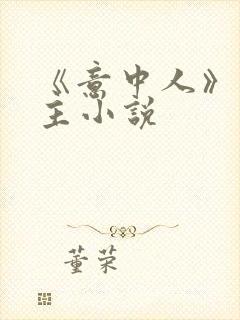 《意中人》
主小说
董荣